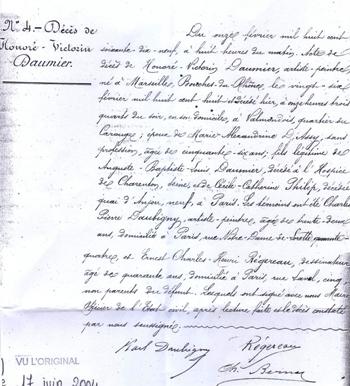 N° 4. — Décès de
Honoré-Victorin
Daumier.
Du onze février mil huit cent
soixante-dix-neuf, à huit heures du matin. Acte de
décès de Honoré-Victorin Daumier, artiste-peintre
né à Marseille, Bouches du Rhône, le vingt-six
février mil huit cent huit décédé hier, à onze heures trois
quarts du soir, en son domicile, à Valmondois, quartier du
Carouge; époux de Marie-Alexandrine D'Assy, sans
profession, âgée de cinquante-six ans; fils légitime de
Auguste-Baptiste-Louis Daumier, décédé à l'Hospice
de Charenton, Seine, et de Cécile-Catherine Philip, décédée
quai d'Anjou, neuf, à Paris. Les témoins ont été Charles
Pierre Daubigny, artiste-peintre, âgé de trente-deux
ans, domicilié à Paris, rue Notre-Dame de Lorette
quatre, et Ernest-Charles-Henri Régereau, dessinateur
âgé de quarante ans, domicilié à Paris, rue Laval, cinq,
non parents du défunt. Lesquels ont signé avec nous Maire
Officier de l'Etat civil, après lecture faite et le décès constaté
par nous soussigné.
Karl Daubigny Régereau
Ch. Bernay
VU L'ORIGINAL
17 juin 2004